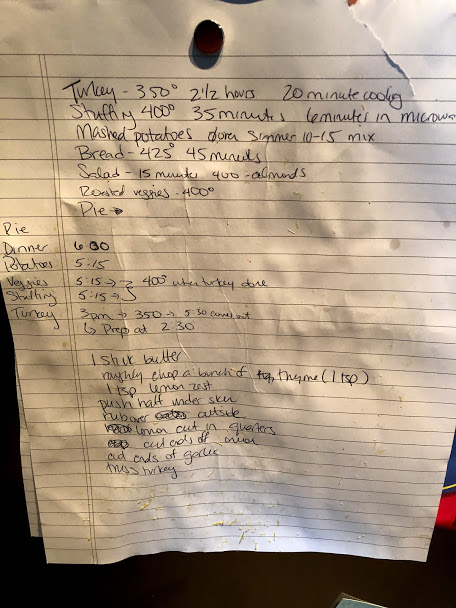 Turkey - 350° 2 1/2 hours 20 minute cooling
Stuffing 400° 35 minutes 6 minutes in microwa
Mashed potatoes simmer 10-15 mix
Bread - 425° 45 minutes
Salad - 15 minutes 400 - almonds
Roasted veggies - 400°
Pie →
Pie
Dinner 6:30
Potatoes 5:15
Veggies 5:15 → 400° when turkey done
Stuffing 5:15 →
Turkey 3pm → 350 → 5:30 comes out
↳ Prep at 2:30
1 stick butter
roughly chop a bunch of thyme (1 tsp)
1 tsp lemon zest
push half under skin
rub over outside
lemon cut in quarters
cut ends of onion
cut ends of garlic
truss turkey